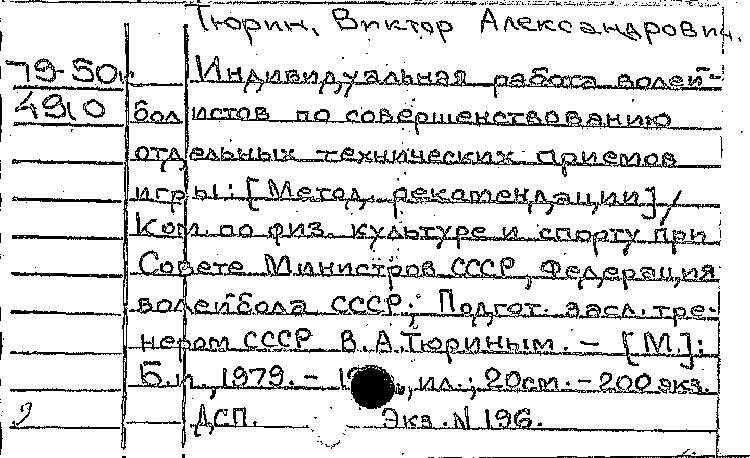 Тюрин, Виктор Александрович.
79-50к Индивидуальная работа волей-
4910 болистов по совершенствованию
отдельных технических приемов
игры: [Метод. рекомендации] /
Ком. по физ. культуре и спорту при
Совете Министров СССР, Федерация
волейбола СССР; Подгот. засл. тре-
нером СССР В.А.Тюриным. - [М.]:
Б.и., 1979. - , ил.; 20см. - 200 экз.
2 ДСП. Экз. N 196.